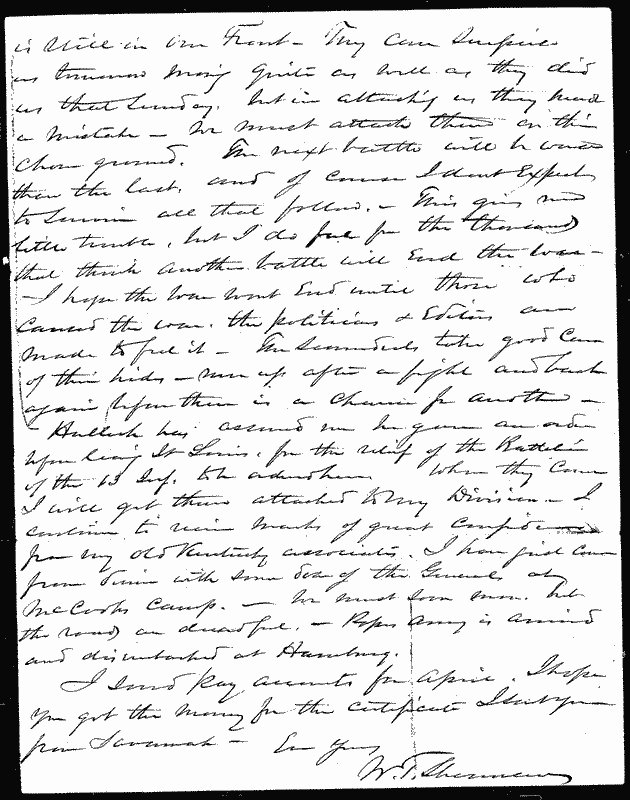 is still in our Front - They can surprise
us tomorrow morng quite as well as they did
us that Sunday. but in attackg us they made
a mistake - We must attack them on their
chosen ground. The next battle will be worse
than the last, and of course I dont Expect
to Survive all that follow. - This gives me
little trouble, but I do feel for the thousands
that think another battle will End the war -
- I hope the War wont End until those who
caused the war. the politicians & Editors are
made to feel it - The Scoundrels take good Care
of their hides - run up after a fight and back
again when there is a chance for another -
- Halleck has assured me he gave an order
upon leaving St Louis, for the relief of the Battalion
of the 13 Inf. to be ordered here When they Come
I will get them attached to my Division - I
continue to receive marks of great Confidence
from my old Kentucky associates. I have just come
from dinner with some dozen of the Generals at
McCooks Camp. - We must soon move. but
the roads are dreadful. - Popes Army is arrived
and disembarked at Hamburg.
I send Pay accounts for April. I hope
you got the money for the certificate I sent you
from Savannah - Ever Yours
W. T. Sherman